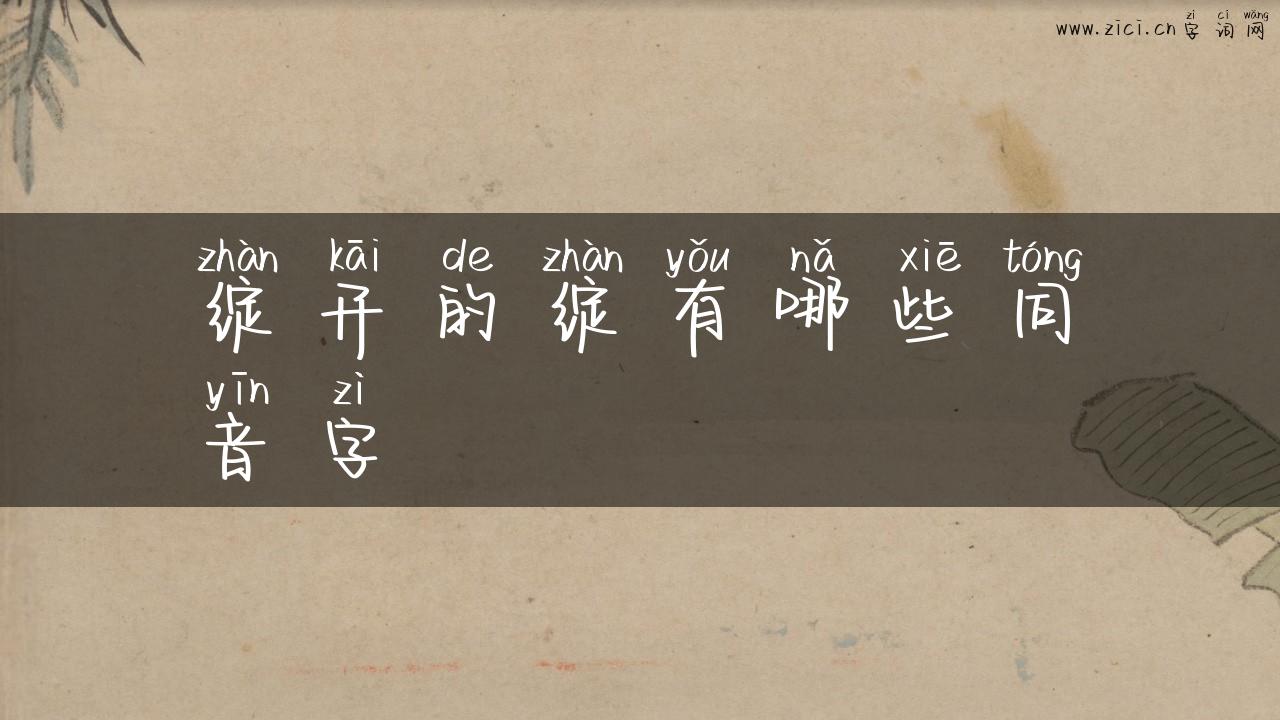 zì cí wǎng
www.zici.cn 字词网
zhàn kāi de zhàn yǒu nǎ xiē tóng
绽开的绽有哪些同
yīn zì
音字